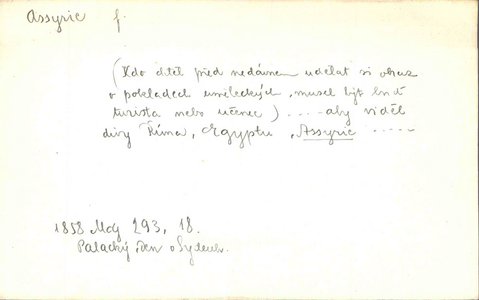 Assyrie f.
(Kdo chtěl před nedávnem udělat si obraz
o pokladech uměleckých, musel být buď
turista nebo učenec) .... aby viděl
divy Říma, Egyptu, Assyrie .....
1858 Máj 293, 18.
Palacký, Den v